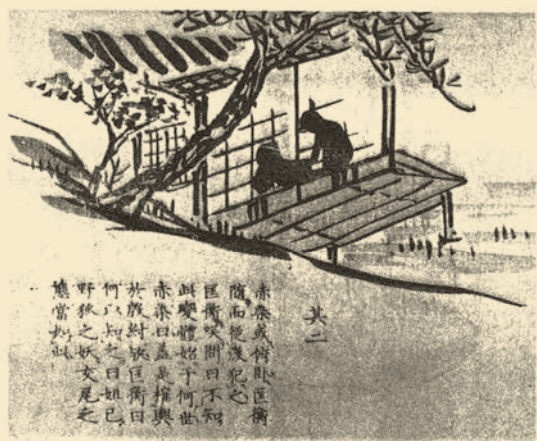 其二
赤染或俯卧匡衡
随而從後犯之
匡衡咲問曰不知
此變體始于何世
赤染曰蓋是權輿
於殷紂歟匡衡曰
何以知之曰妲己
野狐之妖女尾之
應當如此